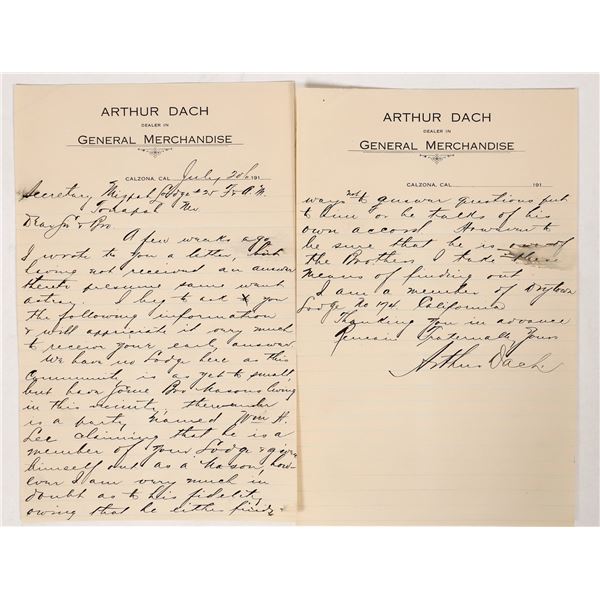 ARTHUR DACH
DEALER IN
GENERAL MERCHANDISE
CALZONA, CAL July 26 191
Secretary Mizpah Lodge # 25 F & A. M.
Tonapah Nev
Dear Sir & Bro.
A few weaks ago
I wrote to you a letter, but
having not received an answer
there presume same went
astray. I beg to ask you
the following information
& will appreciate it very much
to receive your early answer.
We have no Lodge here as this
Community is as yet to small,
but have some Bro Masons living
in this vicinity, thereunder
is a party named Wm H.
Lee claiming that he is a
member of your Lodge & gives
himself out as a Mason, how-
ever I am very much in
doubt as to his fidelity
owing that he either finds
ARTHUR DACH
DEALER IN
GENERAL MERCHANDISE
CALZONA, CAL 191
ways not to answer questions put
to him or he talks of his
own accord. However to
be sure that he is one of
the Brothers I take this
means of finding out.
I am a member of
Lodge No 174. California
Thanking you in advance
Remain Fraternally Yours
Arthur Dach.